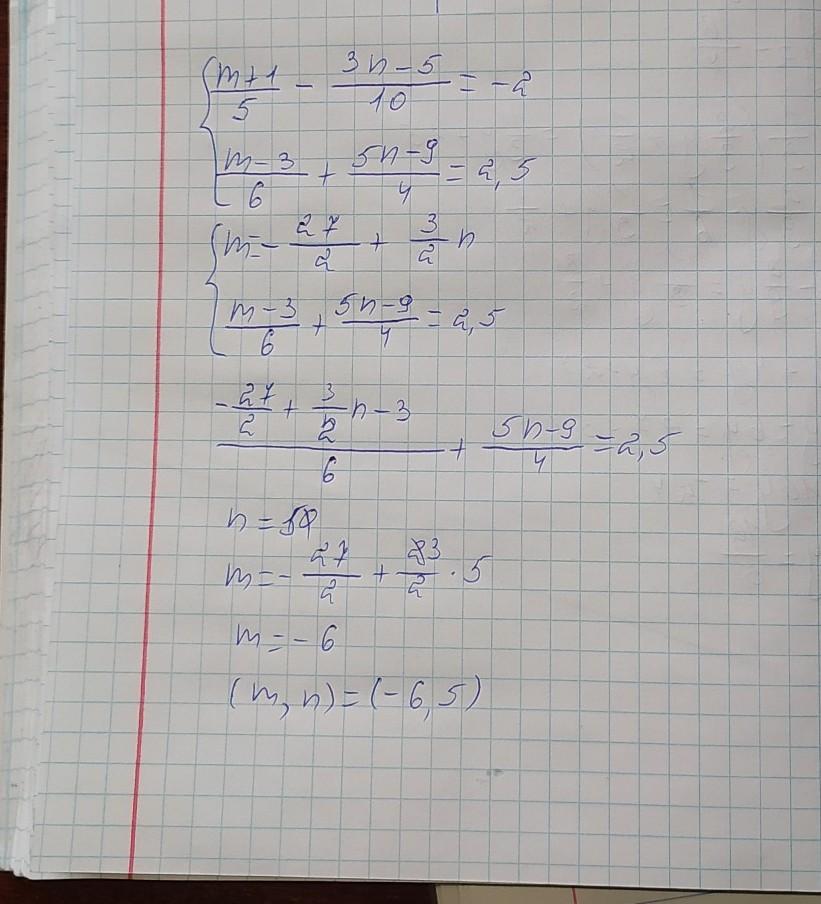 { (m+1)/5 - (3n-5)/10 = -2
(m-3)/6 + (5n-9)/4 = 2,5
{ m = - 27/2 + 3/2 n
(m-3)/6 + (5n-9)/4 = 2,5
(-27/2 + 3/2 n - 3)/6 + (5n-9)/4 = 2,5
n = 5
m = - 27/2 + 3/2 · 5
m = - 6
(m, n) = (-6, 5)